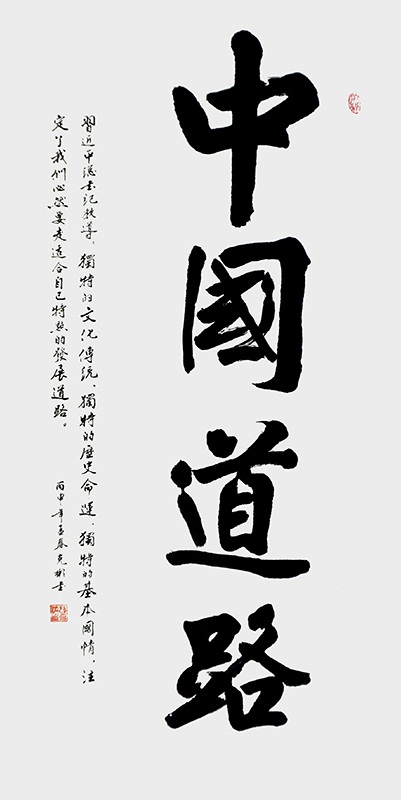 中國道路
習近平總書記教導，獨特的文化傳統、獨特的歷史命運、獨特的基本國情，注
定了我們必然要走適合自己特點的發展道路。
丙申年孟春克彬書